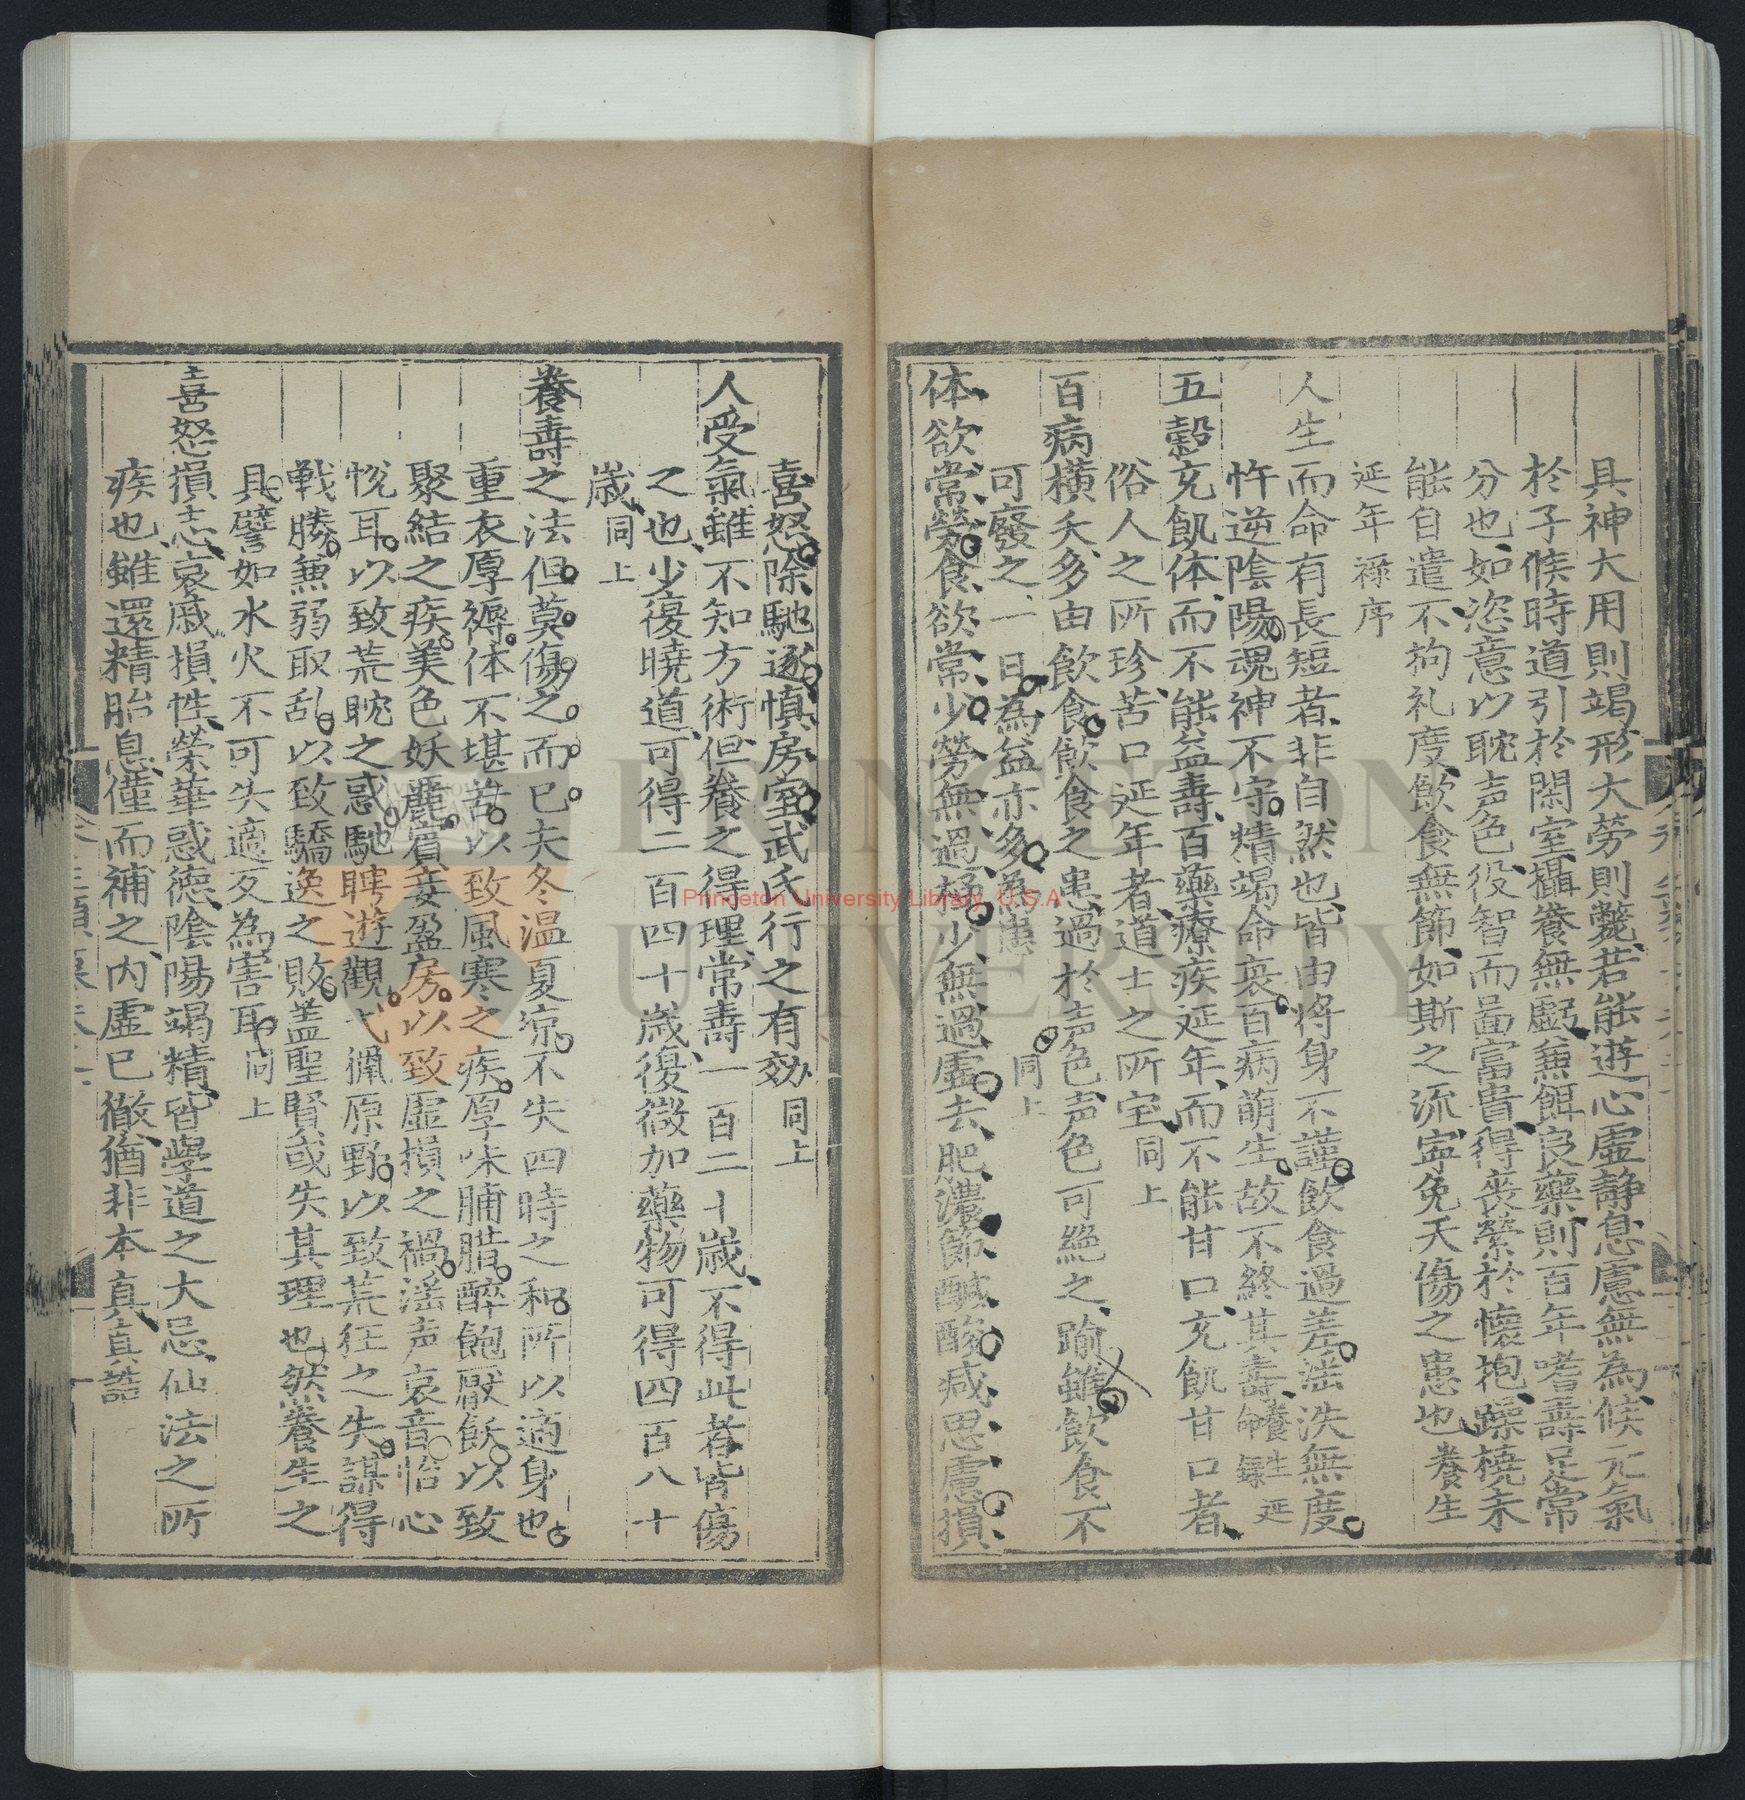 具神大用則竭形大勞則斃若能遊心虛静息慮無為候元氣
於子候時道引於閑室攝養無虧兼餌良藥則百年嗜壽是常
分也如恣意以耽声色役智而啚富貴得丧縈於懷抱躁撓未
能自遣不拘礼度飲食無節如斯之流寜免夭傷之患也養生
延年禄序
人生而命有長短者非自然也皆由将身不謹飲食過差滛泆無度
忤逆陰陽魂神不守精竭命衰百病萌生故不終其壽養生延命録
五穀充飢体而不能益壽百藥療疾延年而不能甘口充飢甘口者
俗人之所珍苦口延年者道士之所宝同上
百病横夭多由飲食飲食之患過於声色声色可絶之踰雖飲食不
可廢之一日為益亦多為患同上
体欲常勞食欲常少勞無過極少無過虚去肥濃節醎酸减思慮損
喜怒除馳逐慎房室武氏行之有効同上
人受氣雖不知方術但養之得理常壽一百二十歳不得此者皆傷
之也少復曉道可得二百四十歳復微加藥物可得四百八十
歳同上
養壽之法但莫傷之而已夫冬温夏凉不失四時之和所以適身也
重衣厚褥体不堪苦以致風寒之疾厚味脯腊醉飽厭飫以致
聚結之疾美色妖麗賔妾盈房以致虚損之禍滛声哀音怡心
悦耳以致荒耽之惑馳聘遊觀弋獵原野以致荒狂之失謀得
戦勝兼弱取乱以致驕逸之敗盖聖賢或失其理也然養生之
具譬如水火不可失適反為害耳同上
喜怒損志哀戚損性榮華惑德陰陽竭精皆學道之大忌仙法之所
疾也雖還精胎息僅而補之内虚已徹猶非本真真誥
PRINCETON
UNIVERSITY
Princeton University Library, U.S.A